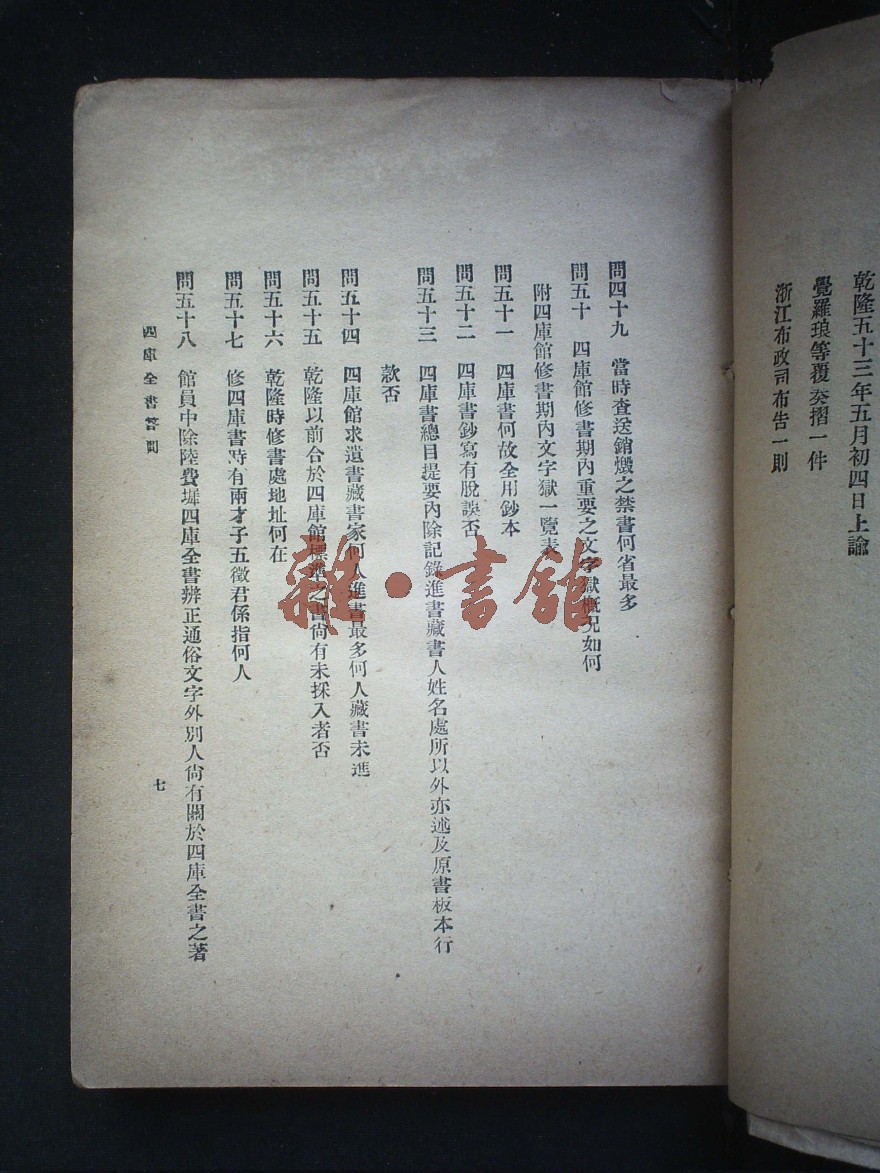 乾隆五十三年五月初四日上諭
覺羅琅等覆奏摺一件
浙江布政司布告一則
問四十九　當時查送銷燬之禁書何省最多
問五十　四庫館修書期內重要之文字獄概况如何
附四庫館修書期內文字獄一覽表
問五十一　四庫書何故全用鈔本
問五十二　四庫書鈔寫有脫誤否
問五十三　四庫書總目提要內除記錄進書藏書人姓名處所以外亦述及原書板本行
款否
問五十四　四庫館求遺書藏書家何人進書最多何人藏書未進
問五十五　乾隆以前合於四庫館標準之書尙有未採入者否
問五十六　乾隆時修書處地址何在
問五十七　修四庫書時有兩才子五徵君係指何人
問五十八　館員中除陸費墀四庫全書辨正通俗文字外別人尙有關於四庫全書之著
四庫全書答問
七
雜·書館